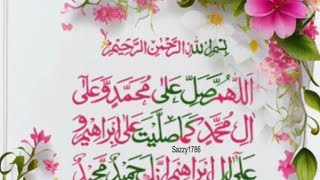 بِسْمِ اللهِ الرَّحْمٰنِ الرَّحِيْمِ
اَللّٰهُمَّ صَلِّ عَلٰى مُحَمَّدٍ وَّعَلٰى
اٰلِ مُحَمَّدٍ كَمَا صَلَّيْتَ عَلٰى اِبْرَاهِيْمَ وَ
Sazzy1786
عَلٰى اٰلِ اِبْرَاهِيْمَ اِنَّكَ حَمِيْدٌ مَّجِيْدٌ